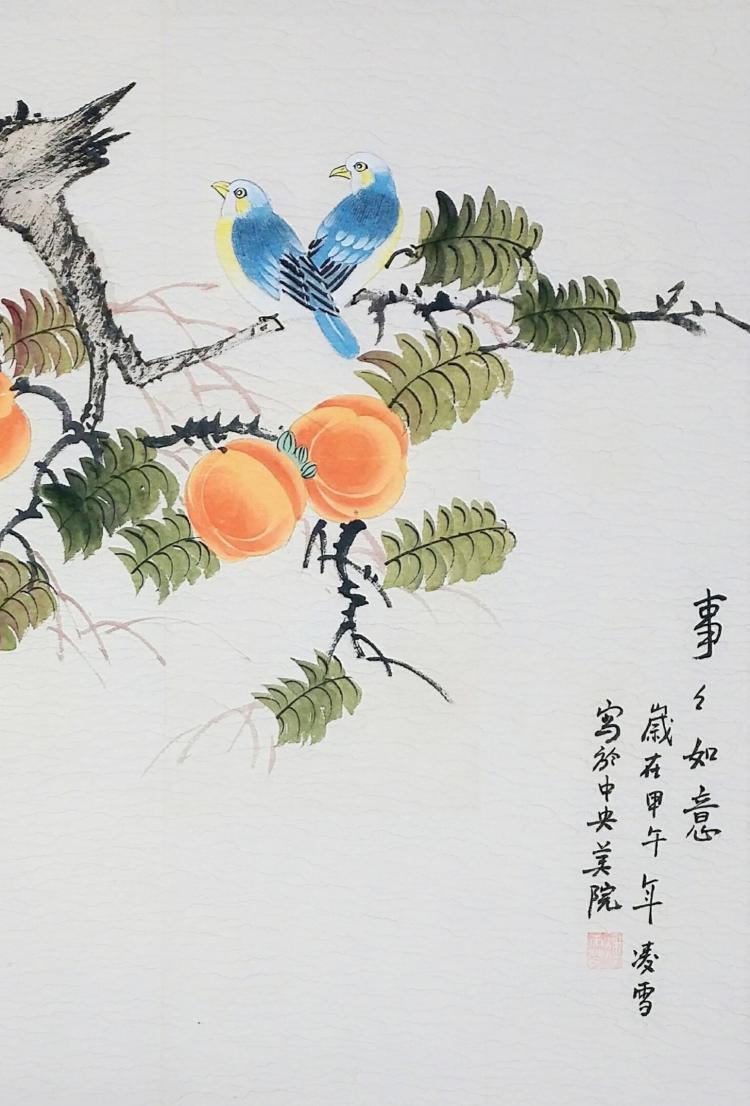 事々如意
歳在甲午年凌雪
寫於中央美院